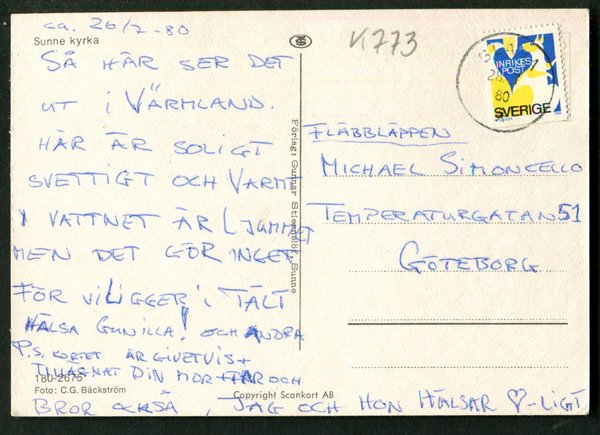 ca. 26/7-80
Sunne kyrka
SÅ HÄR SER DET
UT I VÄRMLAND.
HÄR ÄR SOLIGT
SVETTIGT OCH VARMT
I VATTNET ÄR LJUMMET
MEN DET GÖR INGET
FÖR VI LIGGER I TÄLT
HÄLSA GUNILLA! OCH ANDRA
P.S. KORTET ÄR GIVETVIS
TILLÄGNAT DIN MOR+FAR OCH
BROR OCKSÅ, JAG OCH HON HÄLSAR ♡-LIGT
180-2675
Foto: C.G. Bäckström
Copyright Scankort AB
Förlag: Gunnar Sunne
K773
INRIKES
POST
SVERIGE
80
FLÄBBLÄPPEN
MICHAEL SIMONCELLO
TEMPERATURGATAN 51
GÖTEBORG